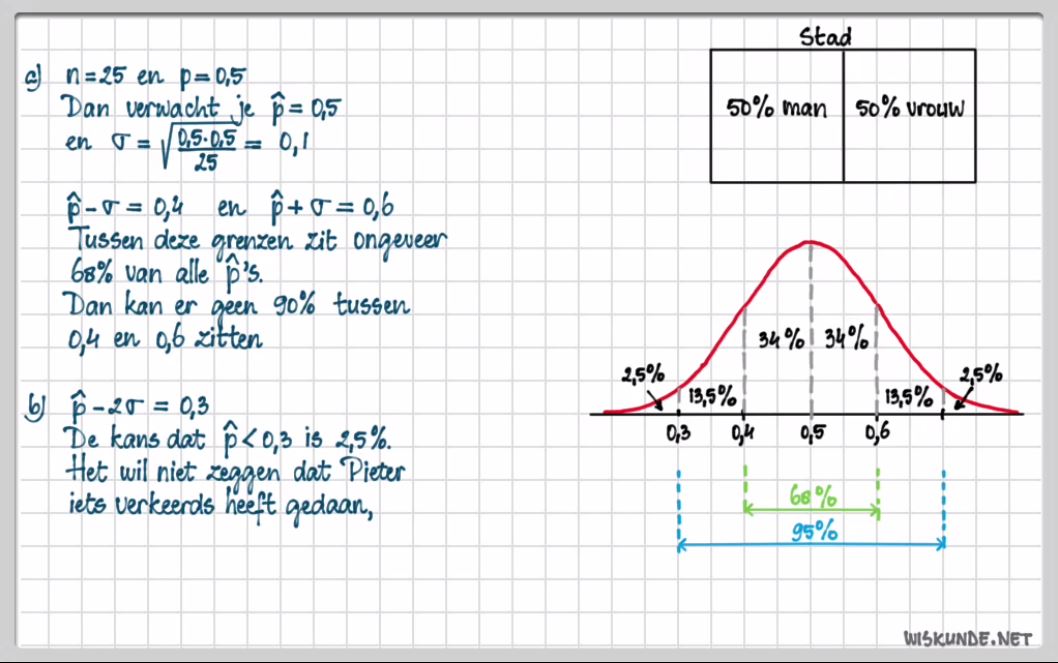 a) n=25 en p=0,5
Dan verwacht je p̂=0,5
en σ = √(0,5·0,5/25) = 0,1
p̂-σ = 0,4 en p̂+σ = 0,6
Tussen deze grenzen zit ongeveer
68% van alle p̂'s.
Dan kan er geen 90% tussen
0,4 en 0,6 zitten
b) p̂-2σ = 0,3
De kans dat p̂<0,3 is 2,5%.
Het wil niet zeggen dat Pieter
iets verkeerds heeft gedaan,
Stad
50% man 50% vrouw
34% 34%
2,5% 13,5% 13,5% 2,5%
0,3 0,4 0,5 0,6
68%
95%
WISKUNDE.NET